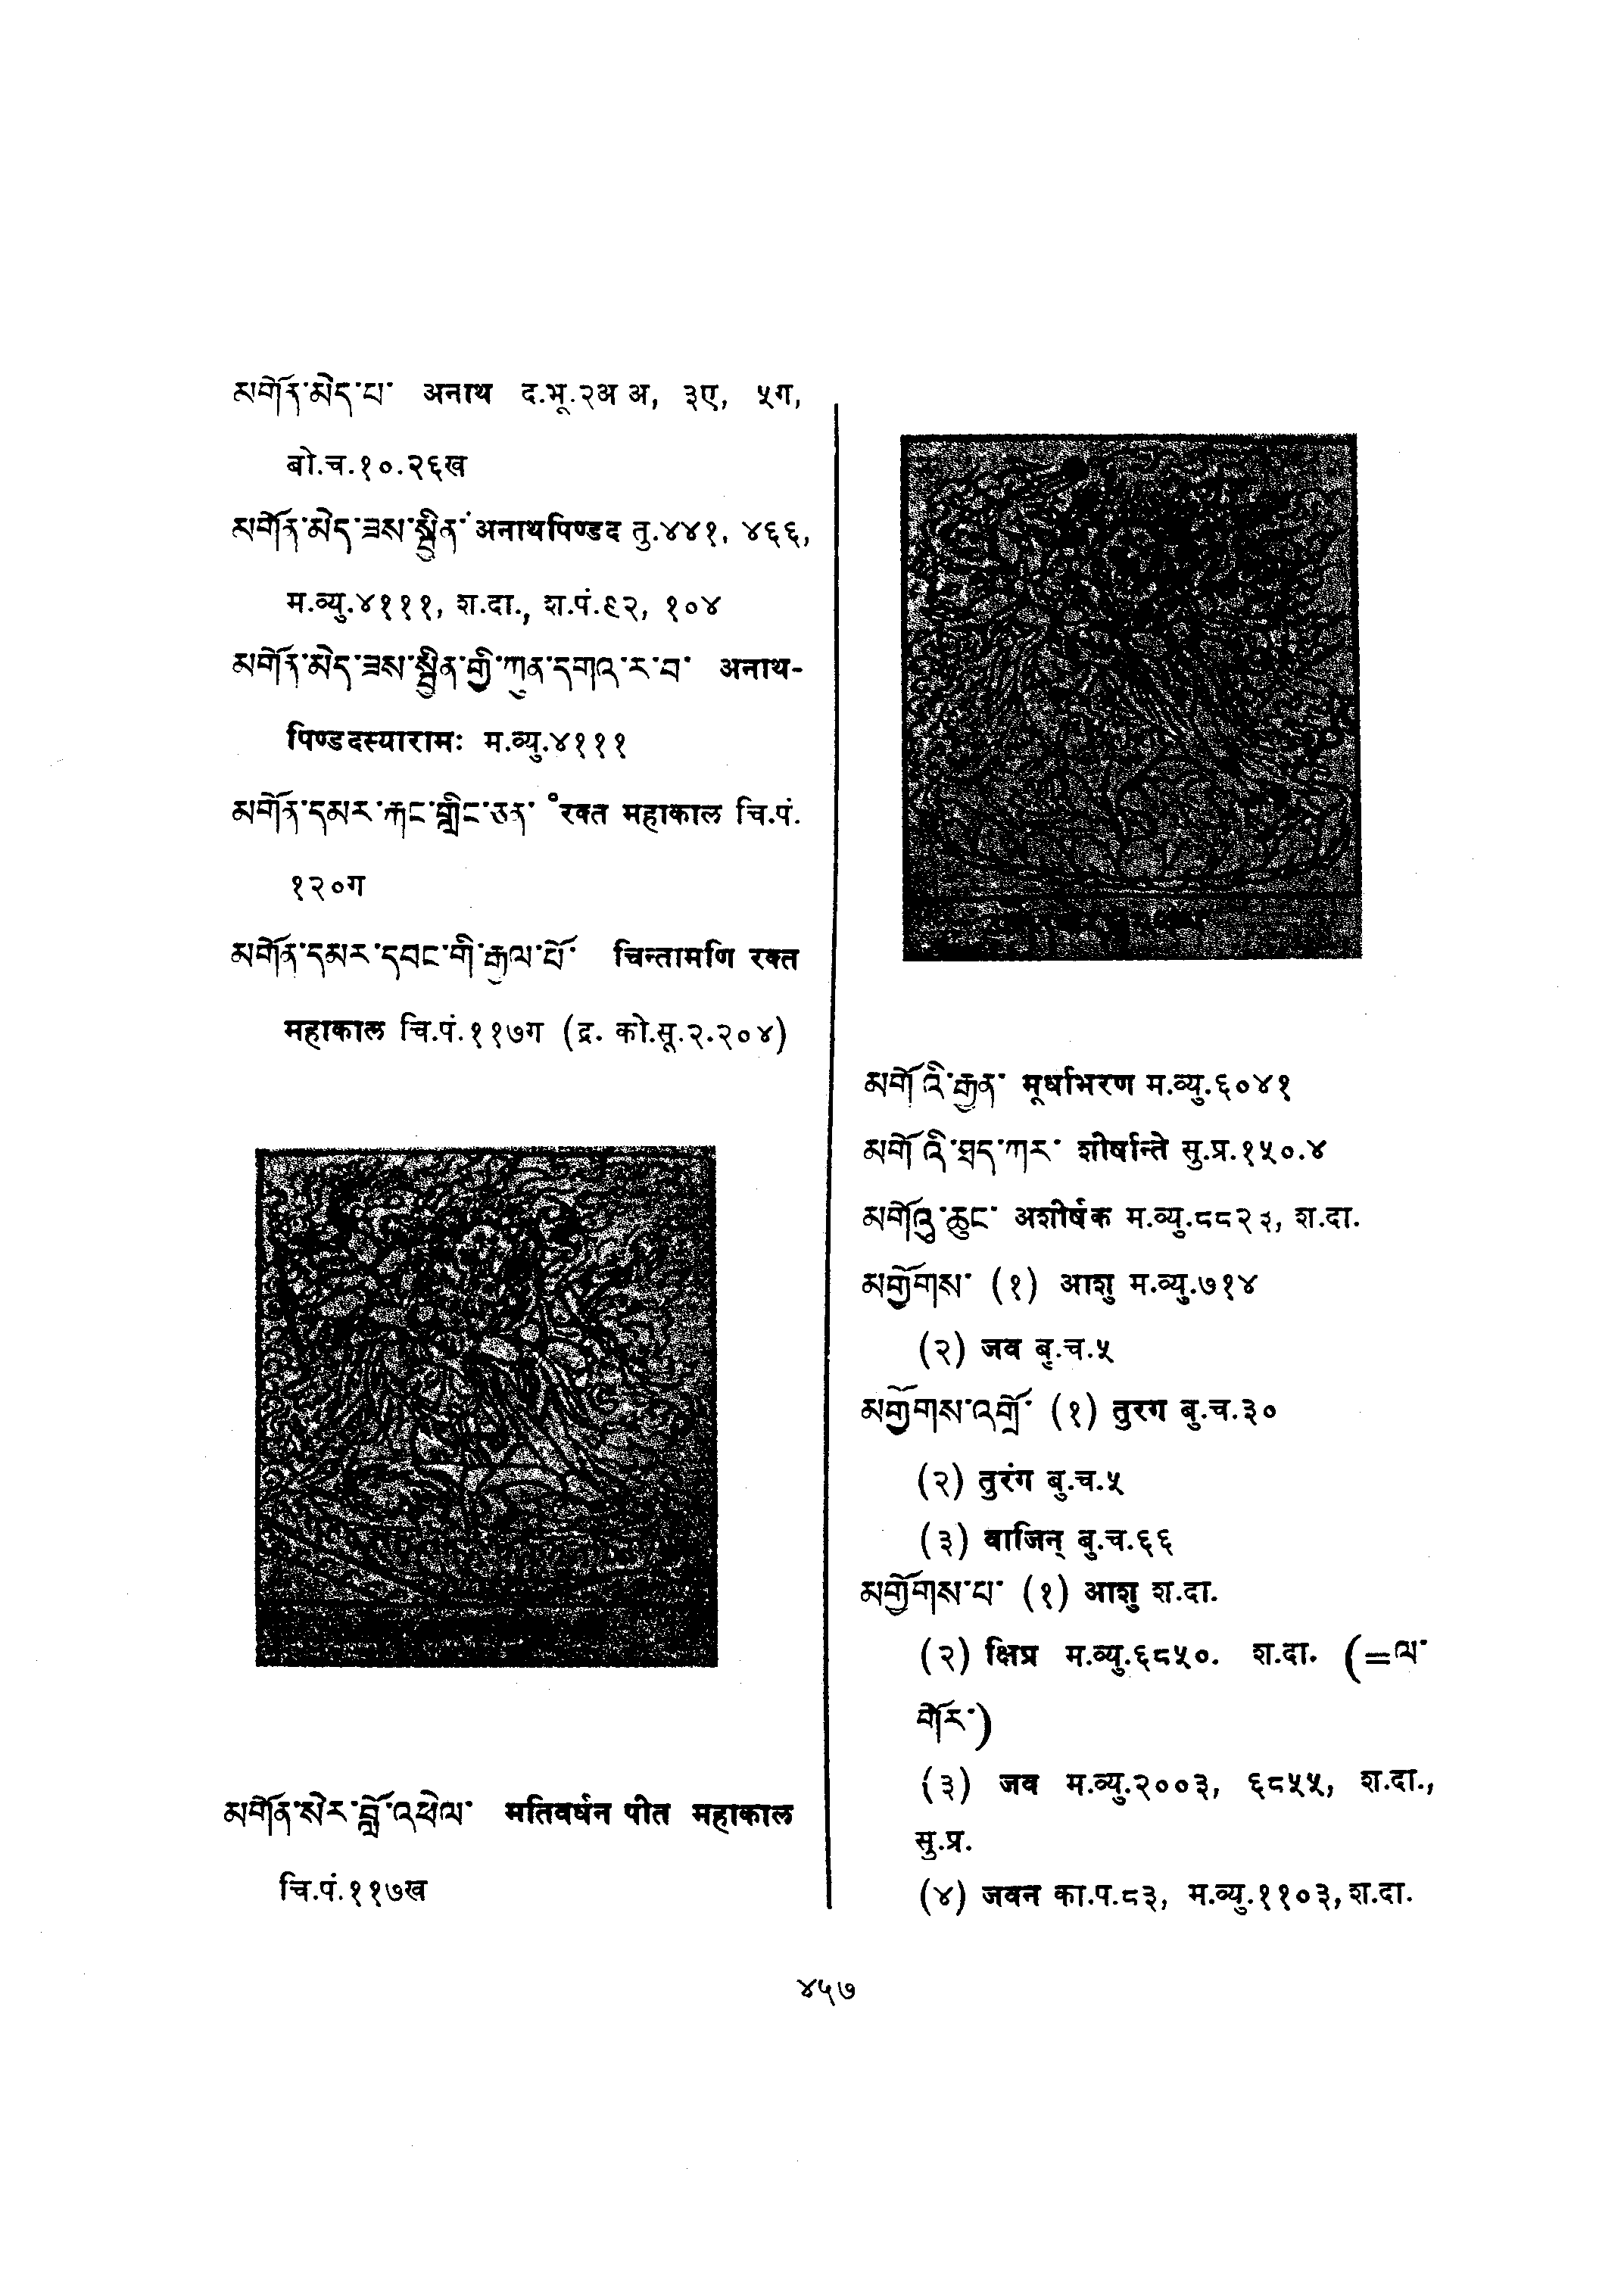 མགོན་མེད་པ་ अनाथ द.भू.२अ अ, ३ए, ५ग,
बो.च.१०.२६ख
མགོན་མེད་ཟས་སྦྱིན་ अनाथपिण्डद तु.४४१, ४६६,
म.व्यु.४१११, श.दा., श.पं.९२, १०४
མགོན་མེད་ཟས་སྦྱིན་གྱི་ཀུན་དགའ་ར་བ་ अनाथ-
पिण्डदस्यारामः म.व्यु.४१११
མགོན་དམར་རྐང་གླིང་ཅན་ °रक्त महाकाल चि.पं.
१२०ग
མགོན་དམར་དབང་གི་རྒྱལ་པོ་ चिन्तामणि रक्त
महाकाल चि.पं.११७ग (द्र. को.सू.२.२०४)
མགོན་སེར་བློ་འཕེལ་ मतिवर्धन पीत महाकाल
चि.पं.११७ख
མགོ་འི་རྒྱན་ मूर्धाभरण म.व्यु.६०४१
མགོ་འི་ཐད་ཀར་ शीर्षान्ते सु.प्र.१५०.४
མགོའུ་ཆུང་ अशीर्षक म.व्यु.८८२३, श.दा.
མགྱོགས་ (१) आशु म.व्यु.७१४
(२) जव बु.च.५
མགྱོགས་འགྲོ་ (१) तुरग बु.च.३०
(२) तुरंग बु.च.५
(३) वाजिन् बु.च.६६
མགྱོགས་པ་ (१) आशु श.दा.
(२) क्षिप्र म.व्यु.६८५०. श.दा. (=ལ་
གོར་)
(३) जव म.व्यु.२००३, ६८५५, श.दा.,
सु.प्र.
(४) जवन का.प.८३, म.व्यु.११०३, श.दा.
४५७